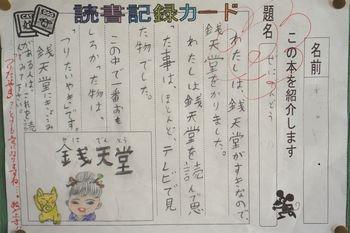 読書記録カード
名前
この本を紹介します
題名
ぜにてんどう
わたしは、銭天堂がすきなので、
銭天堂をかりました。
わたしは銭天堂を読んで思っ
た事は、ほとんど、テレビで見
た物でした。
この中で一番おも
しろかった物は、
「つりたいやき」です。
銭天堂にきょうみ
がある人は、これを読
んでみて下さい。
ぜにてんどう
銭天堂